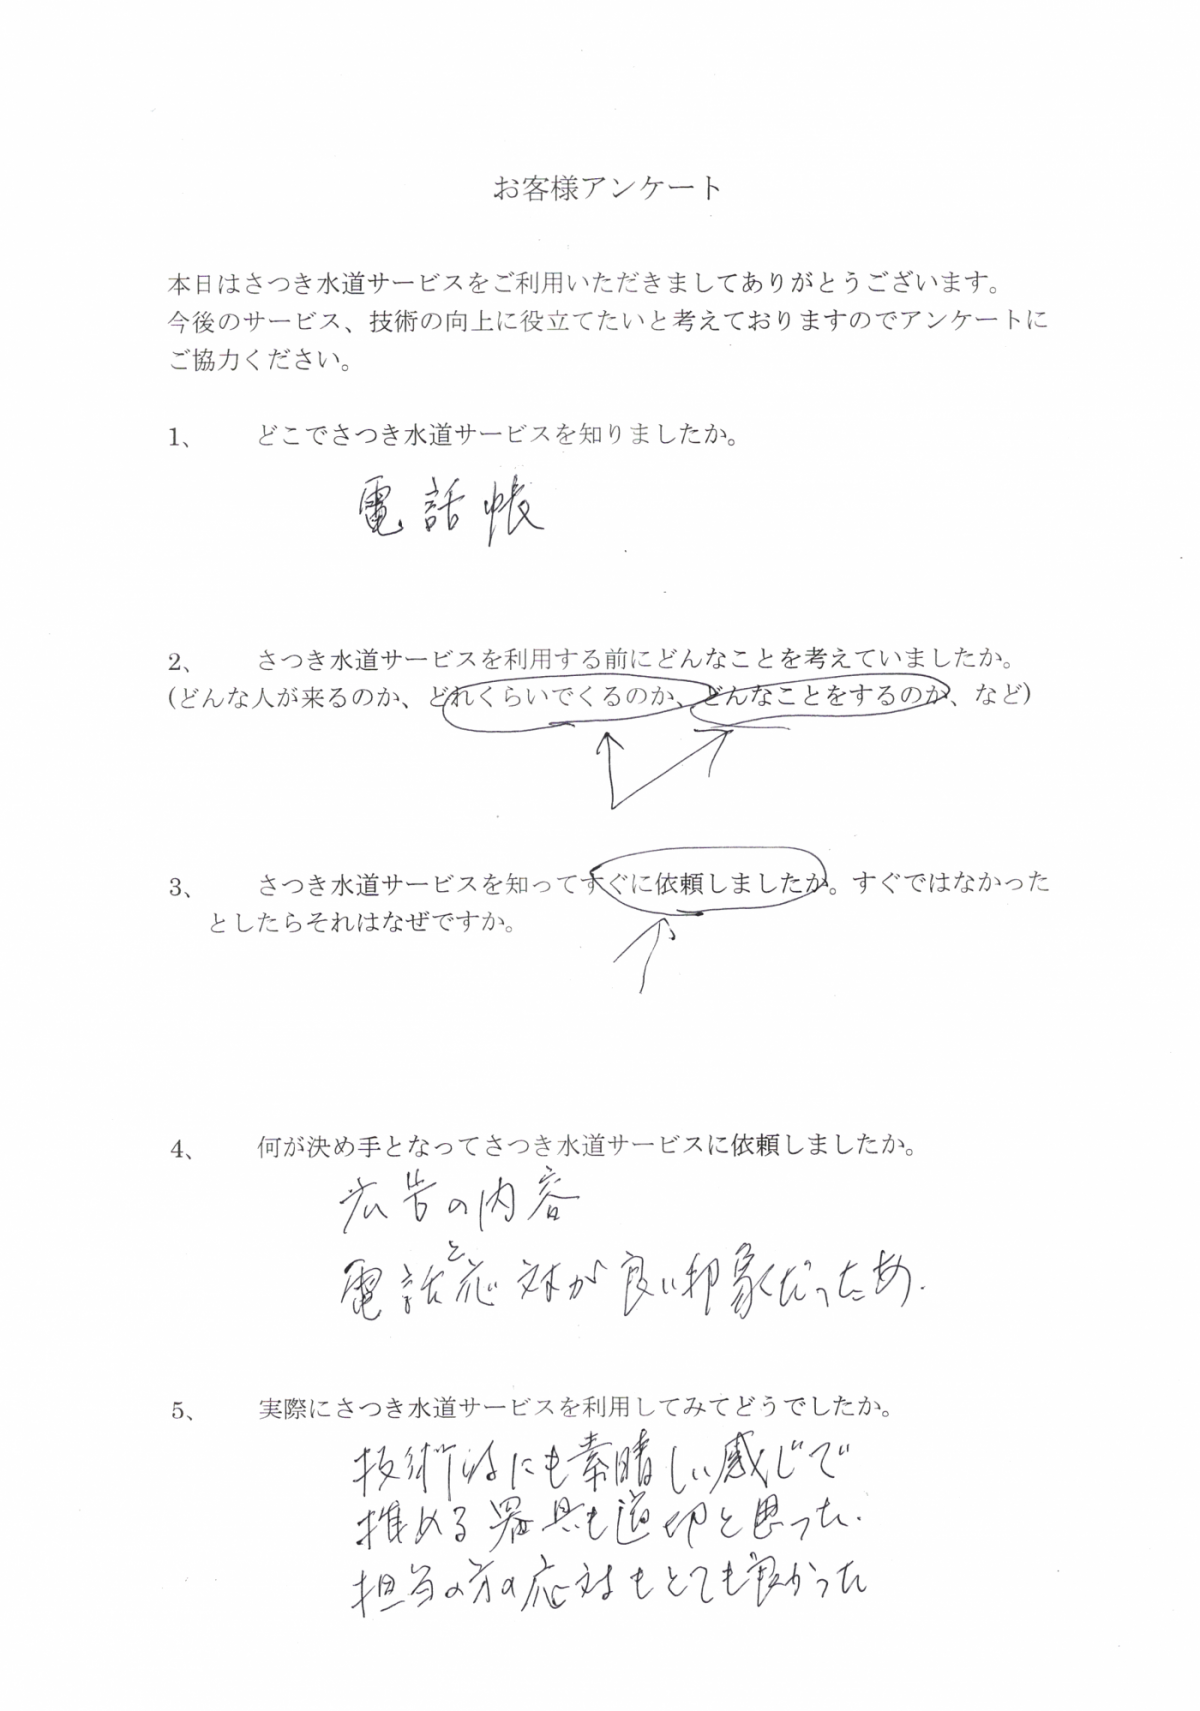 お客様アンケート
本日はさつき水道サービスをご利用いただきましてありがとうございます。
今後のサービス、技術の向上に役立てたいと考えておりますのでアンケートに
ご協力ください。
1、 どこでさつき水道サービスを知りましたか。
電話帳
2、 さつき水道サービスを利用する前にどんなことを考えていましたか。
(どんな人が来るのか、どれくらいでくるのか、どんなことをするのか、など)
3、 さつき水道サービスを知ってすぐに依頼しましたか。すぐではなかった
としたらそれはなぜですか。
4、 何が決め手となってさつき水道サービスに依頼しましたか。
広告の内容
電話と応対が良い印象だったため.
5、 実際にさつき水道サービスを利用してみてどうでしたか。
技術的にも素晴しい感じで
推める器具も適切と思った.
担当の方の応対もとても良かった